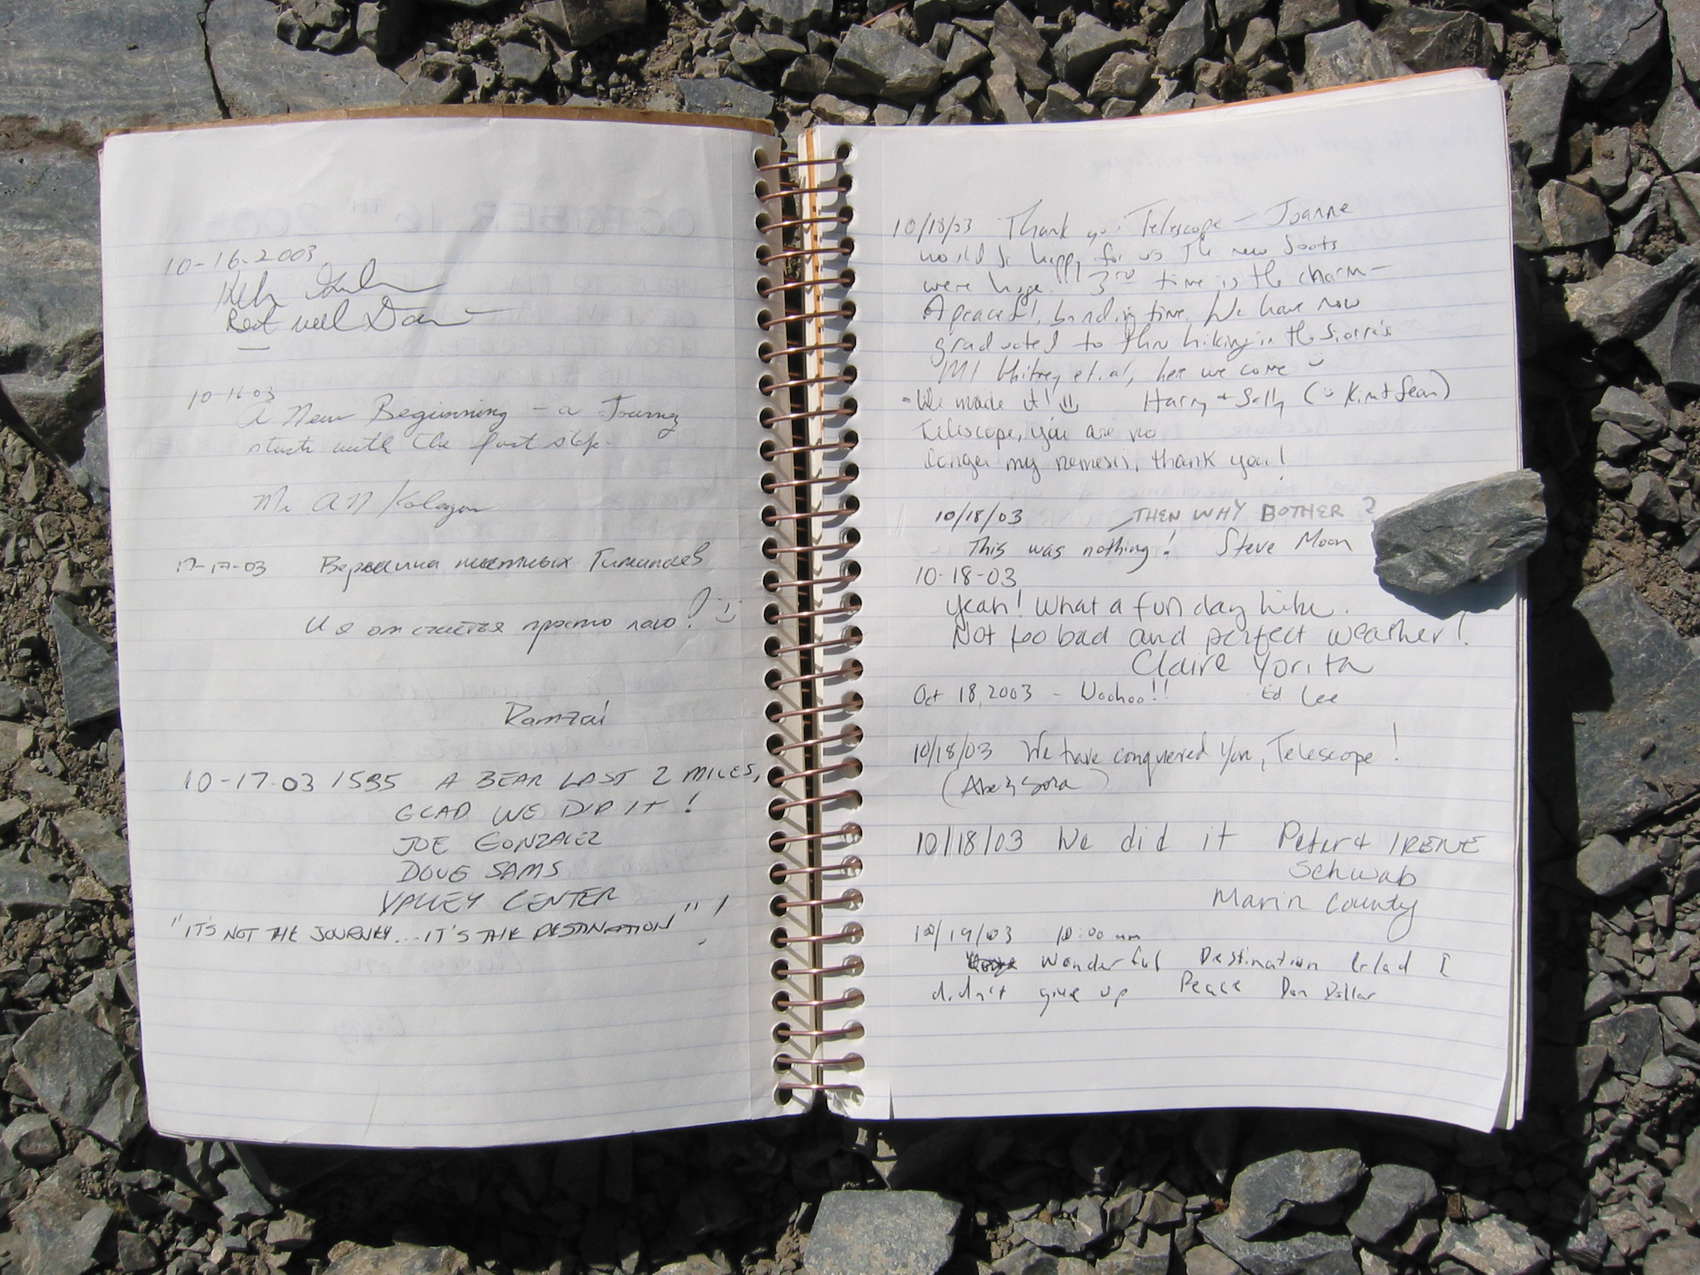 10-16-2003
10-16-03
A New Beginning - a Journey
starts with the first step.
Mr
10-17-03
И я
просто
!
Ramzai
10-17-03 1535 A BEAR LAST 2 MILES,
GLAD WE DID IT!
JOE GONZALEZ
DOUG SAMS
VALLEY CENTER
"IT'S NOT THE JOURNEY... IT'S THE DESTINATION"!
10/18/03 Thank you Telescope - Joanne
would be happy for us The new boots
were huge!! 3rd time is the charm -
A peaceful, bonding time. We have now
graduated to thru hiking in the Sierra's
Mt Whitney et. al, here we come
- We made it! Harry + Sally (Kim + Sean)
Telescope, you are no
longer my nemesis, thank you!
10/18/03 THEN WHY BOTHER?
This was nothing! Steve Moon
10-18-03
Yeah! What a fun day hike.
Not too bad and perfect weather!
Claire Yorita
Oct 18, 2003 - Woohoo!! Ed Lee
10/18/03 We have conquered you, Telescope!
10/18/03 We did it Peter & IRENE
Schwab
Marin County
10/19/03
Wonderful Destination Glad I
didn't give up Peace Dan